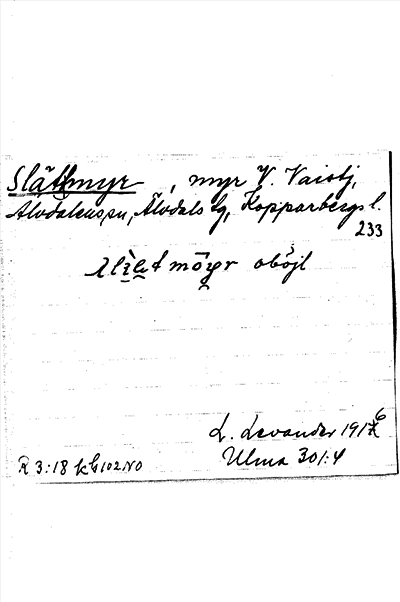 Slättmyr, myr V. Vaistj,
Älvdalens sn, Älvdals tg, Kopparbergs l.
233
oböjl
L. Levander 1916
Ulma 301:4
R 3:18 k G102 NO